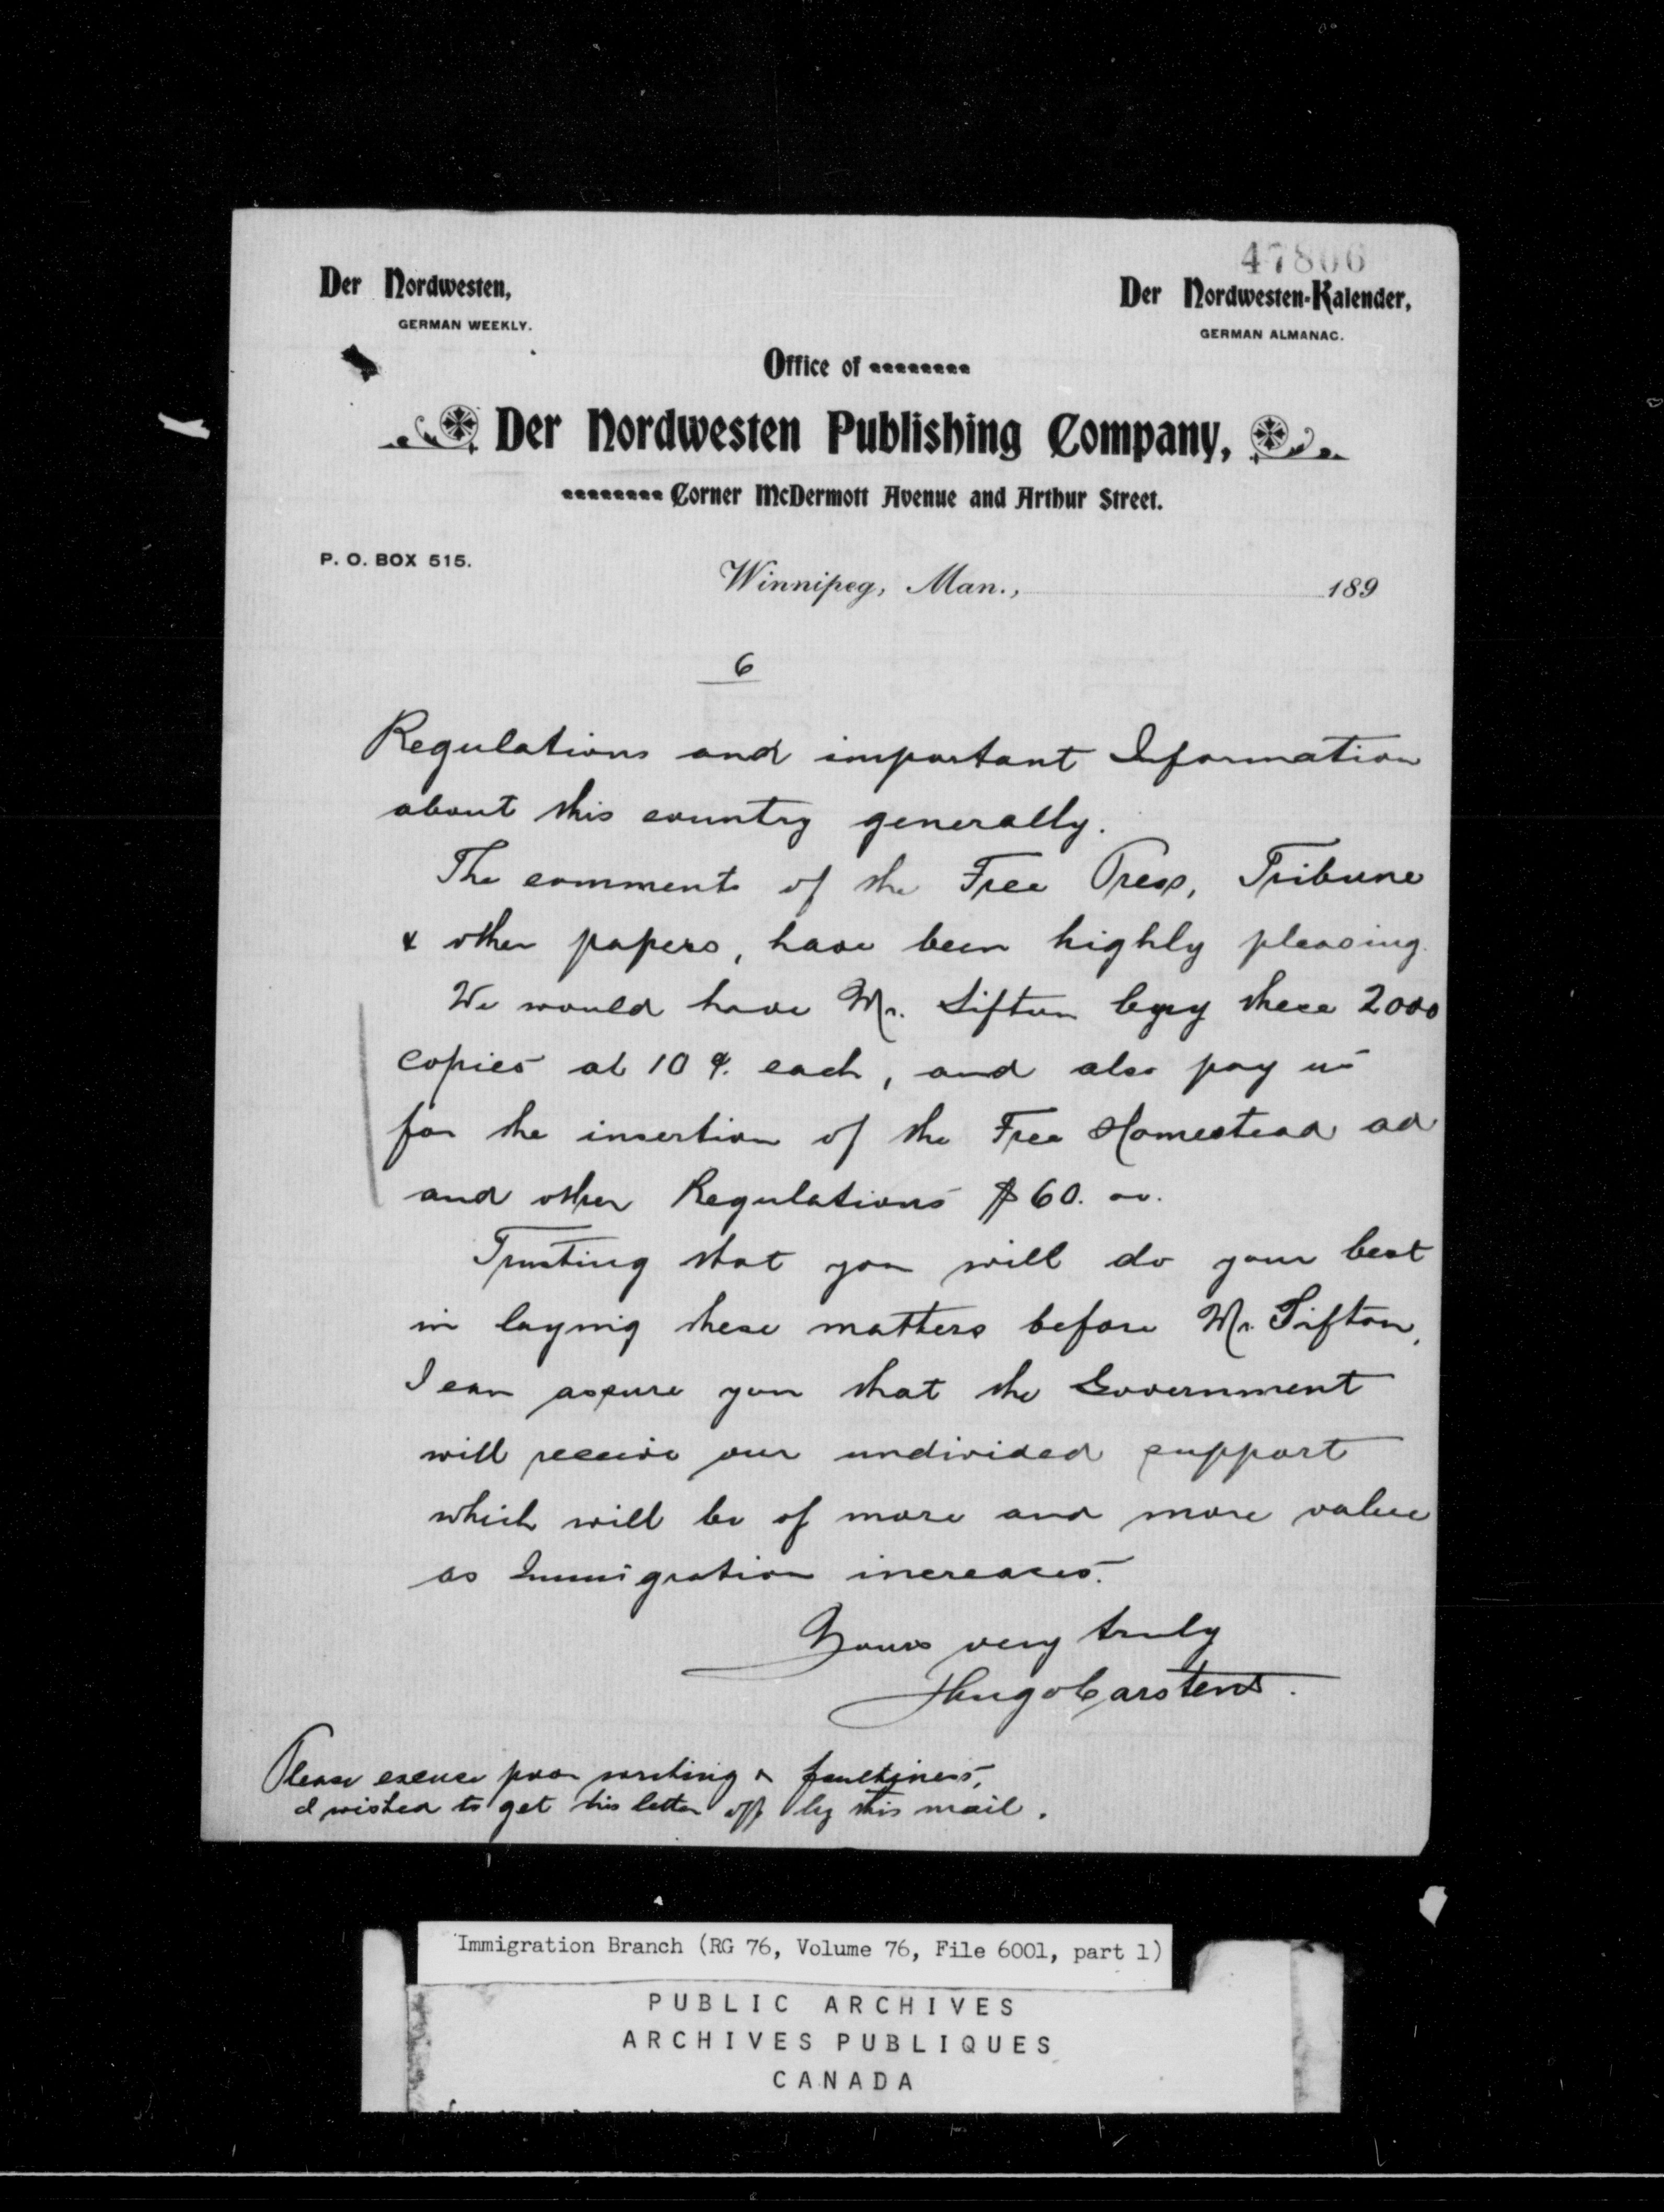 47806
Der Nordwesten,
GERMAN WEEKLY.
Der Nordwesten-Kalender,
GERMAN ALMANAC.
Office of
Der Nordwesten Publishing Company,
Corner McDermott Avenue and Arthur Street.
P. O. BOX 515.
Winnipeg, Man., 189
6
Regulations and important Information
about this country generally.
The comments of the Free Press, Tribune
& other papers, have been highly pleasing.
We would have Mr. Sifton buy these 2000
copies at 10 ¢. each, and also pay us
for the insertion of the Free Homestead ad
and other Regulations $60. oo.
Trusting that you will do your best
in laying these matters before Mr. Sifton,
I can assure you that the Government
will receive our undivided support
which will be of more and more value
as Immigration increases.
Yours very truly
Hugo Carstens.
Please excuse poor writing & faultiness,
I wished to get this letter off by this mail.
Immigration Branch (RG 76, Volume 76, File 6001, part 1)
PUBLIC ARCHIVES
ARCHIVES PUBLIQUES
CANADA